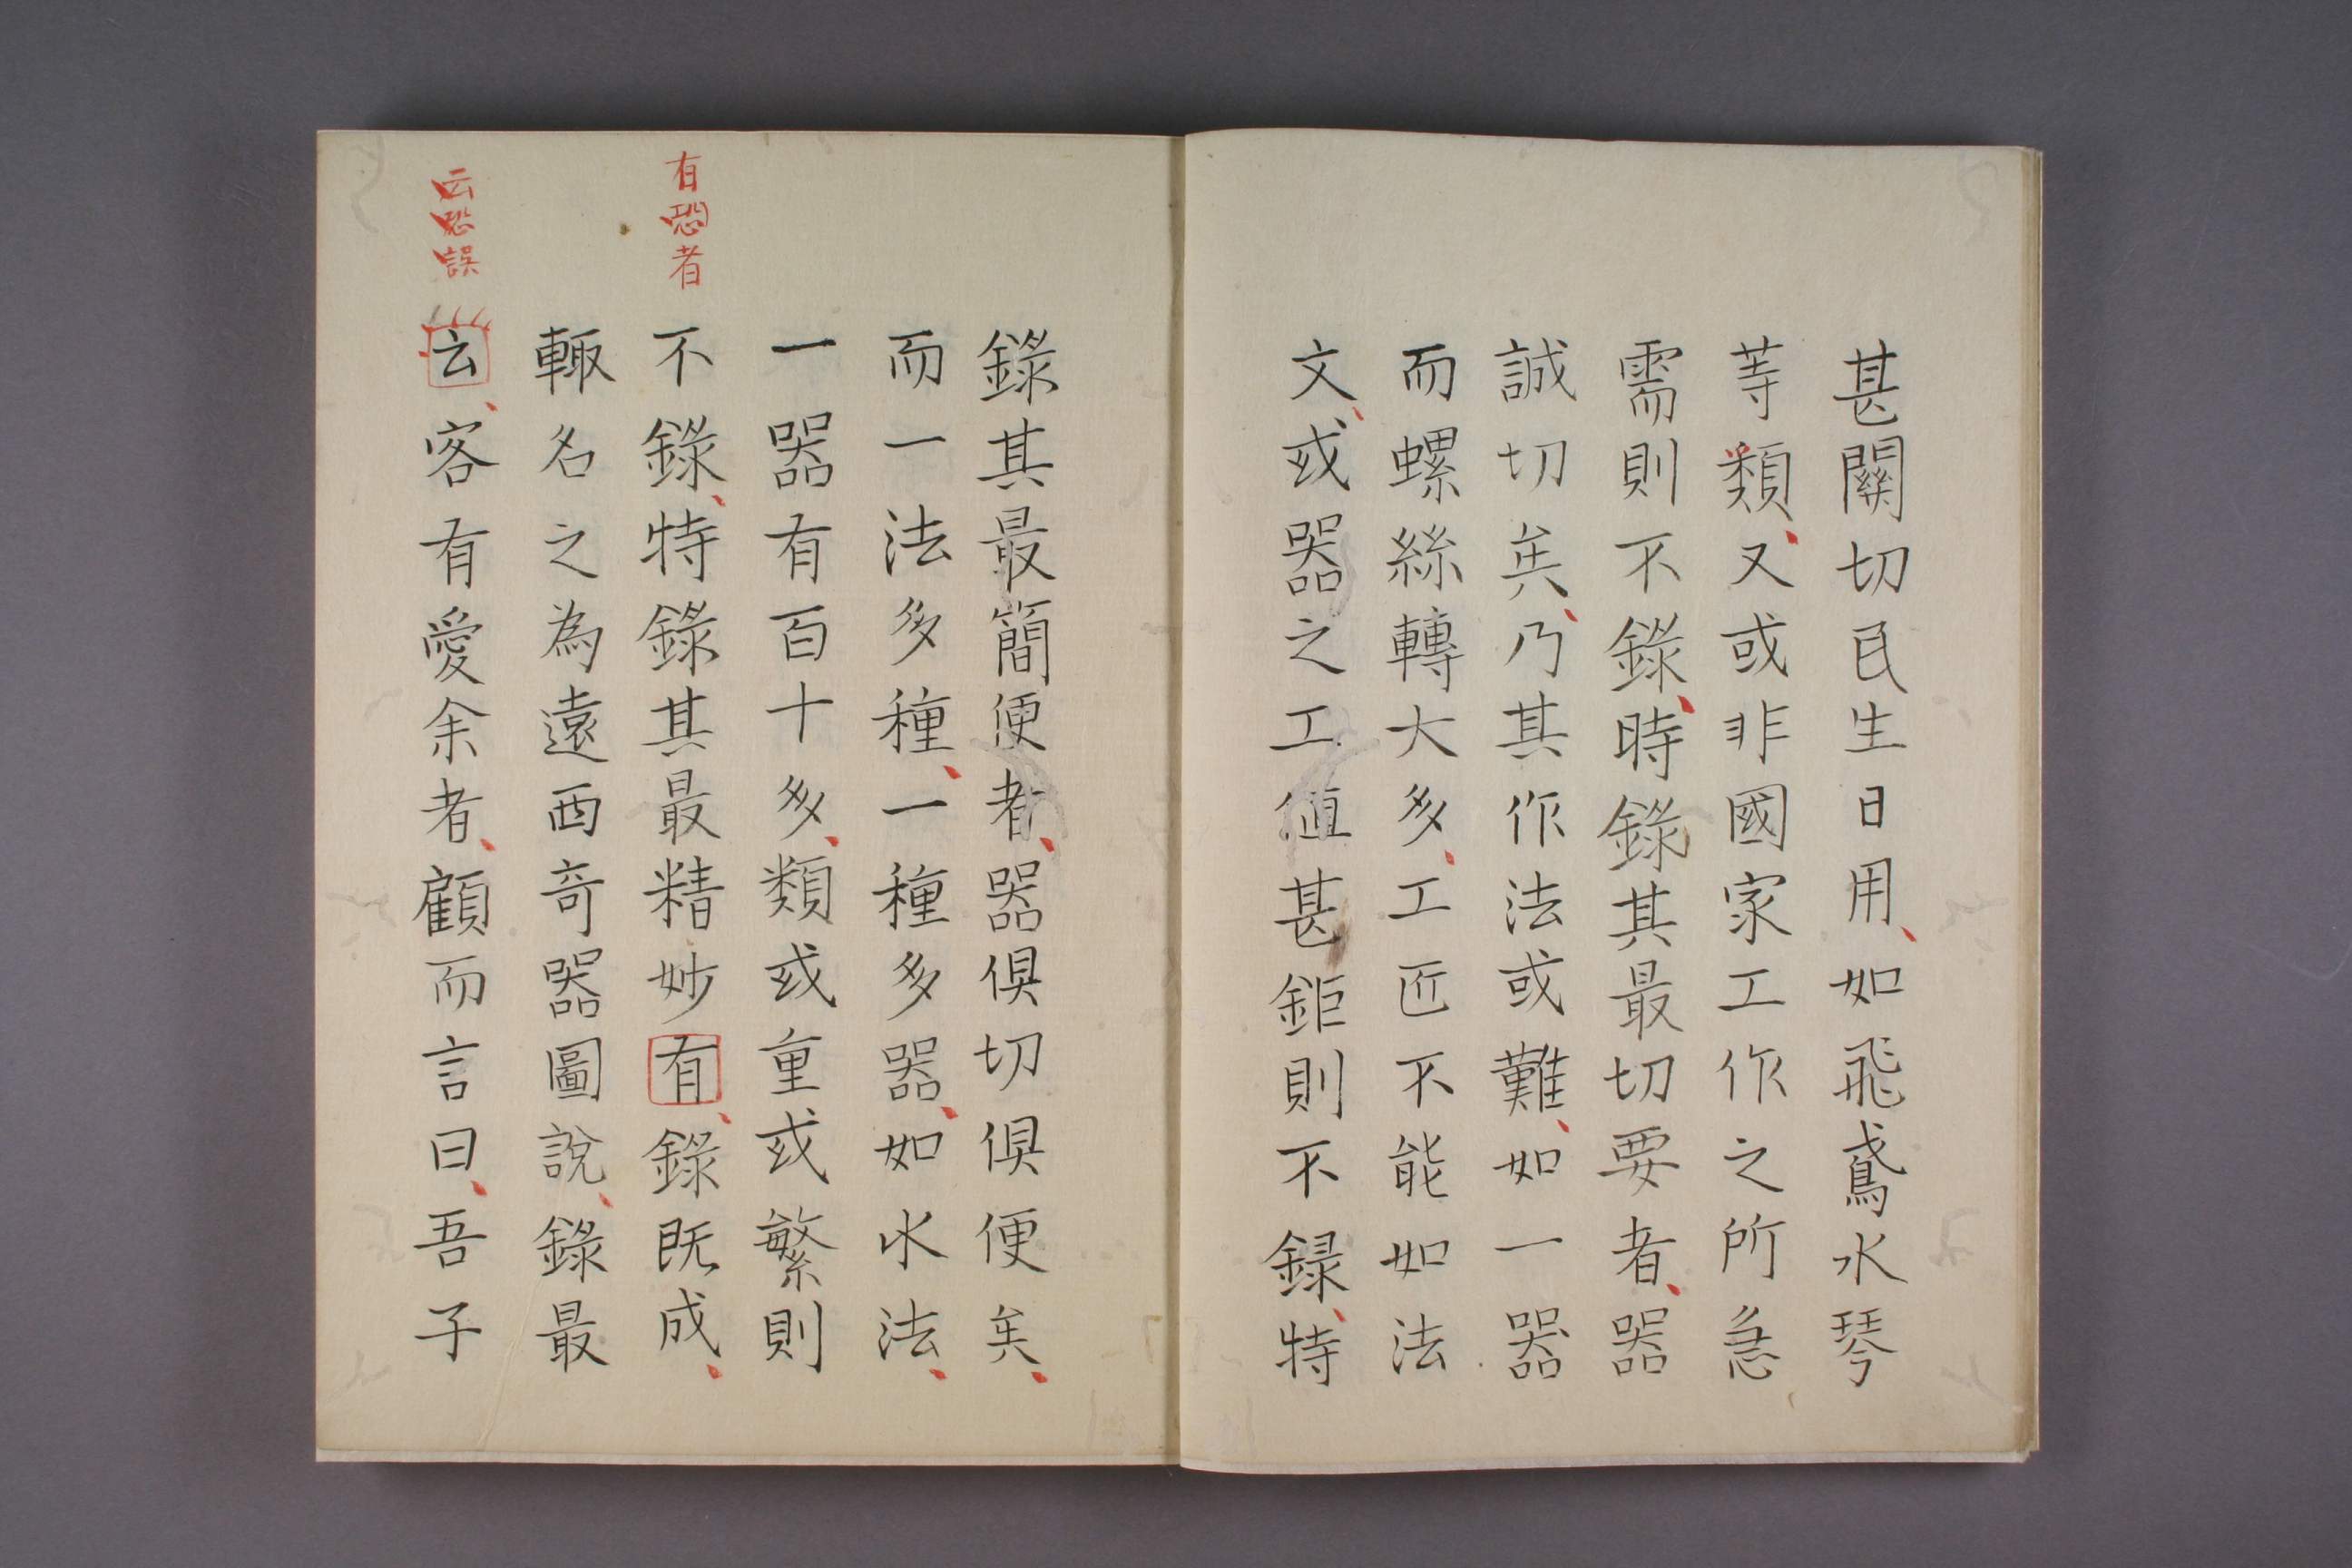 甚關切民生日用、如飛鳶水琴
等類、又或非國家工作之所急
需則不錄、時錄其最切要者、器
誠切矣、乃其作法或難、如一器
而螺絲轉大多、工匠不能如法
文、或器之工值甚鉅則不録、特
錄其最簡便者、器俱切俱便矣、
而一法多種、一種多器、如水法、
一器有百十多、類或重或繁則
有恐者
不錄、特錄其最精妙有、錄既成、
輙名之為遠西奇器圖說、錄最
云恐誤
云、客有愛余者、顧而言曰、吾子